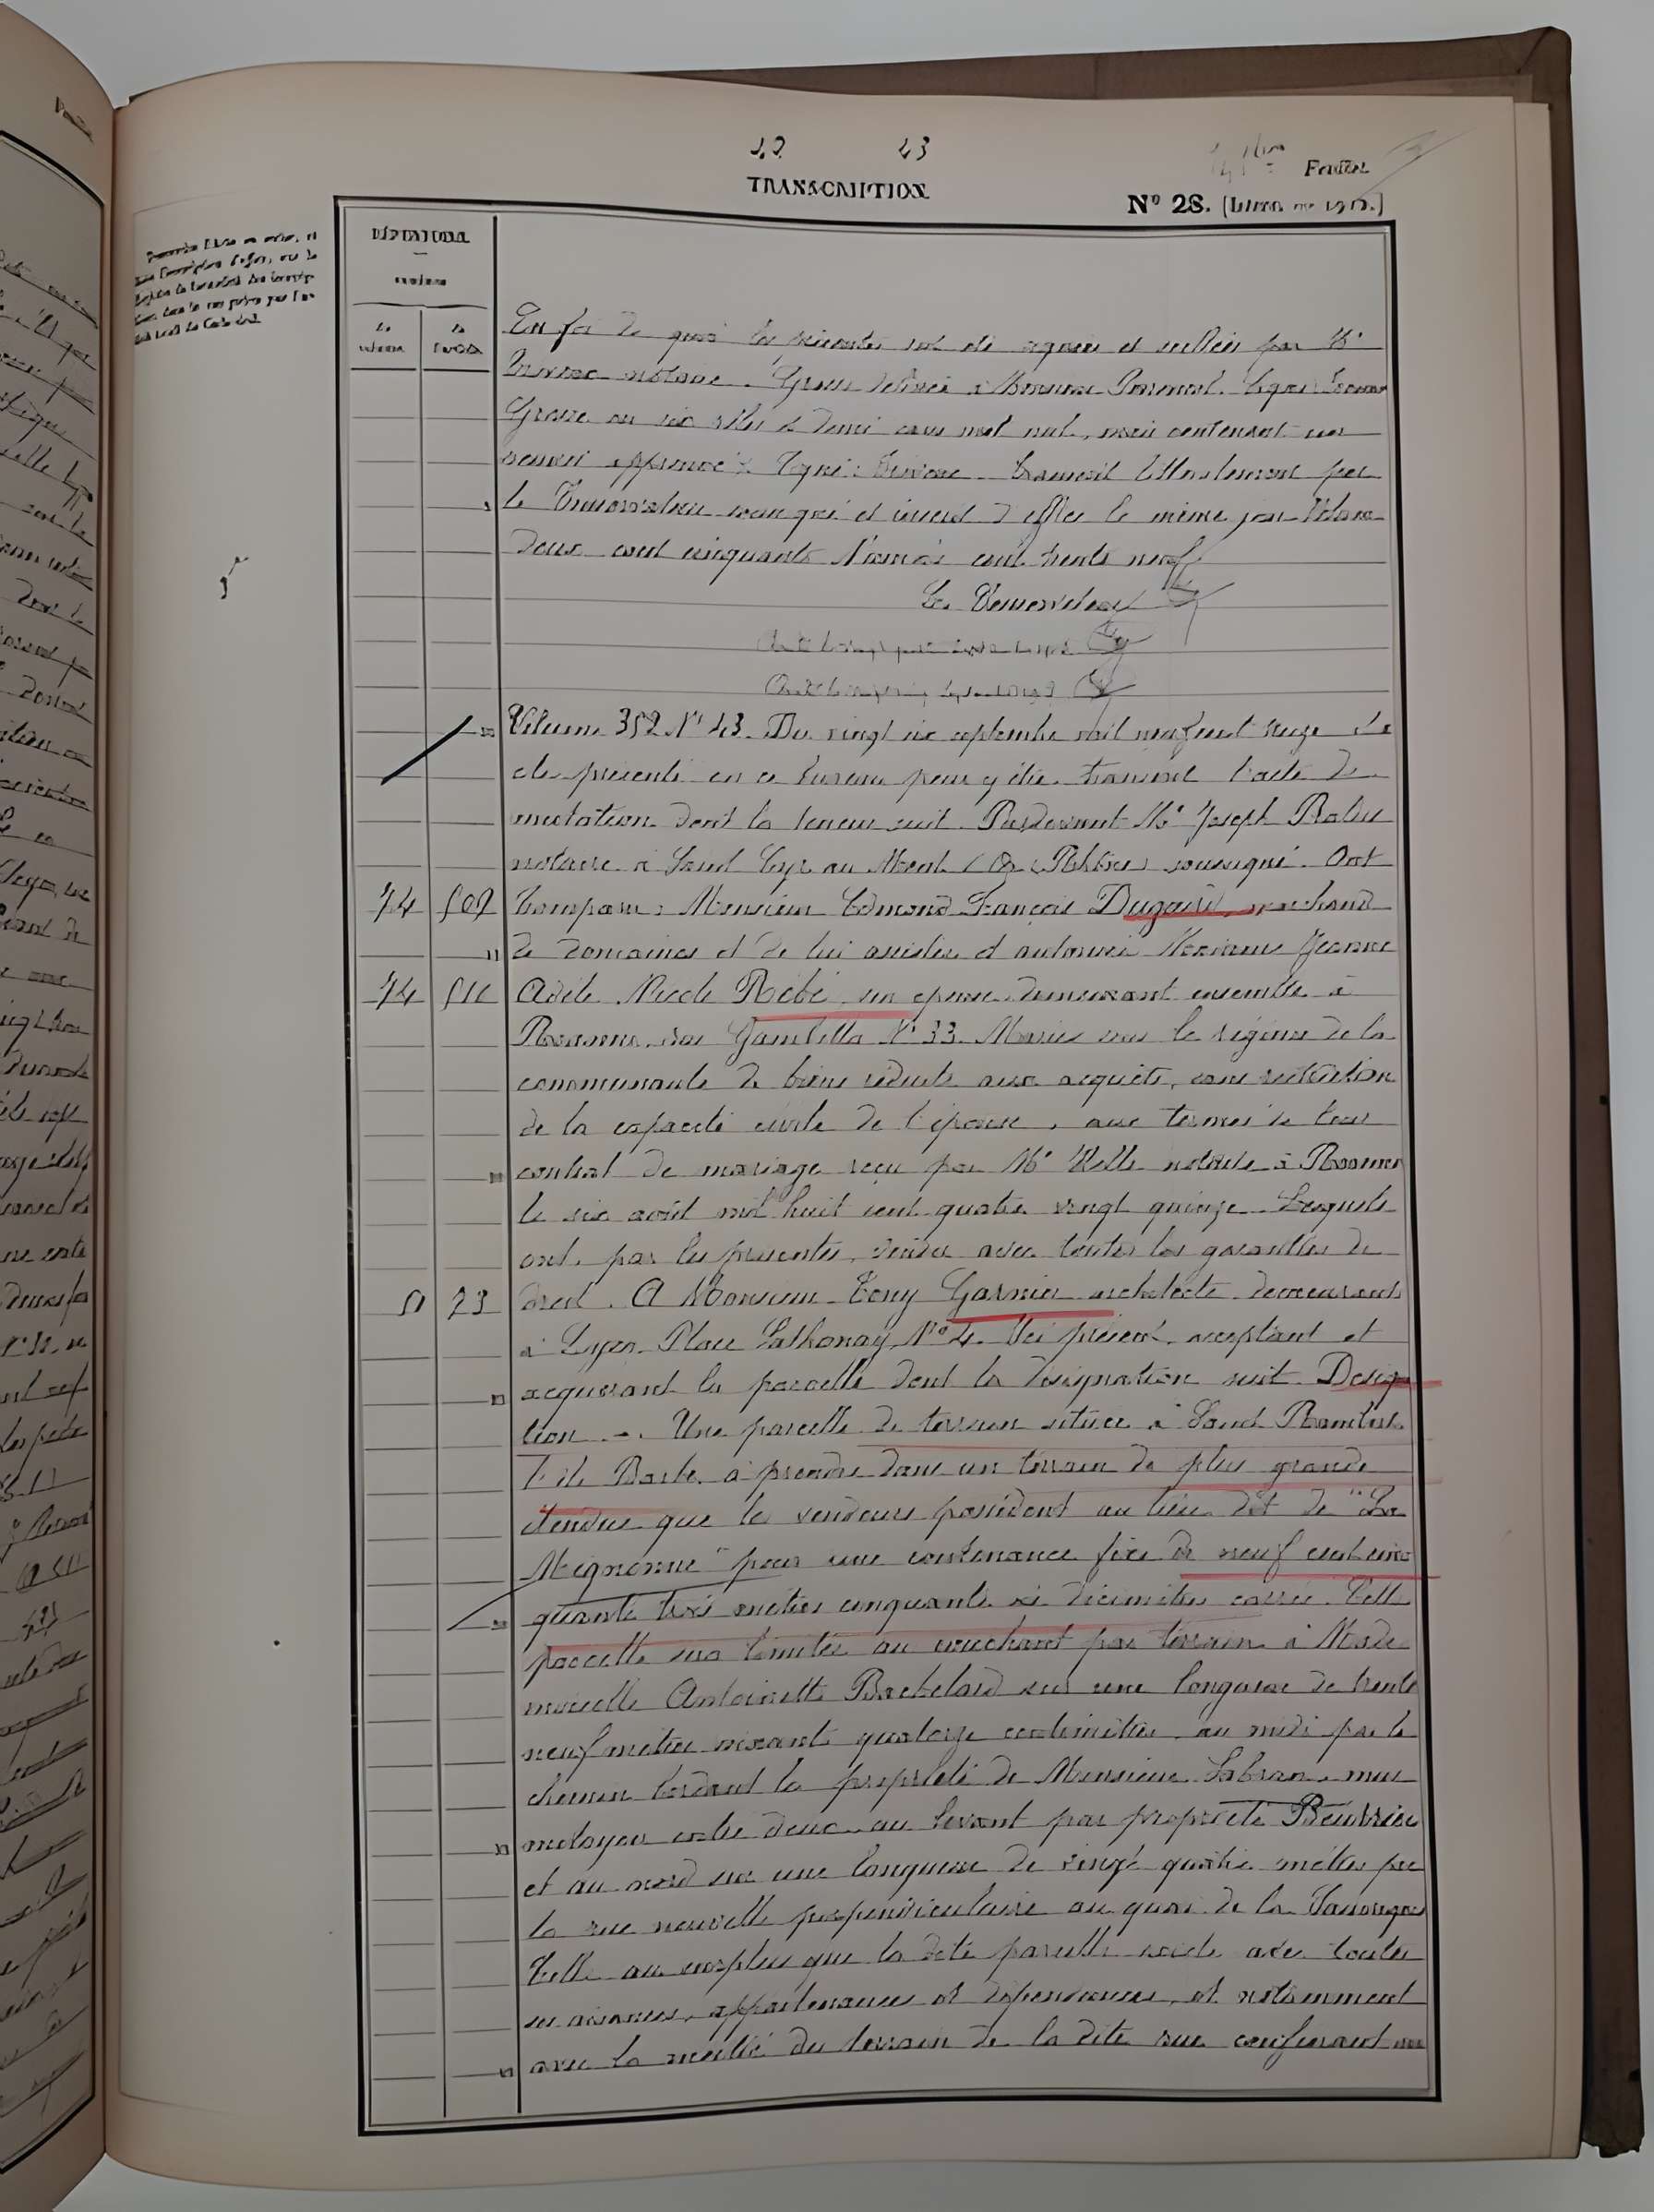 42 43
TRANSCRIPTION
Nº 28.
En foi de quoi les présentes ont été signées et scellées par Mᵉ
notaire. Grosse délivrée à Monsieur
Grosse en six rôles et demi sans mot nul, mais contenant un
renvoi approuvé. Signé: Transcrit littéralement par
le Conservateur soussigné et inscrit d'office le même jour Volume
deux cent cinquante Numéro cent trente neuf
Le Conservateur
Volume 352 Nº 43. Du vingt six septembre mil neuf cent treize. A
été présenté en ce bureau pour y être transcrit l'acte de
mutation dont la teneur suit. Pardevant Mᵉ Joseph
notaire à Saint Cyr au Mont d'Or (Rhône) soussigné. Ont
74 507 Comparu: Monsieur Edmond François marchand
de domaines et de lui assistée et autorisée Madame Jeanne
74 Adèle Nicole Rébé son épouse demeurant ensemble à
Roanne, rue Gambetta Nº 33. Mariés sous le régime de la
communauté de biens réduite aux acquêts, sans restriction
de la capacité civile de l'épouse, aux termes de leur
contrat de mariage reçu par Mᵉ notaire à Roanne
le six août mil huit cent quatre vingt quinze. Lesquels
ont, par les présentes, vendu avec toutes les garanties de
51 23 droit. A Monsieur Tony Garnier architecte demeurant
à Lyon Place Sathonay, Nº 4. Ici présent, acceptant et
acquérant la parcelle dont la désignation suit. Désigna
tion -. Une parcelle de terrain située à Saint Rambert
l'île Barbe, à prendre dans un terrain de plus grande
étendue que les vendeurs possèdent au lieu dit de "La
Mignonne" pour une contenance fixe de neuf cent cin
quante trois mètres cinquante six décimètres carrés. Telle
parcelle sera limitée au couchant par terrain à Made
moiselle Antoinette Bachelard sur une longueur de trente
neuf mètres soixante quatorze centimètres, au midi par le
chemin bordant la propriété de Monsieur Sabran, mur
mitoyen entre deux, au levant par propriété Beurrier
et au nord sur une longueur de vingt quatre mètres par
la rue nouvelle perpendiculaire au quai de la
Telle au surplus que la dite parcelle existe avec toutes
ses aisances, appartenances et dépendances, et notamment
avec la moitié du terrain de la dite rue confinant au